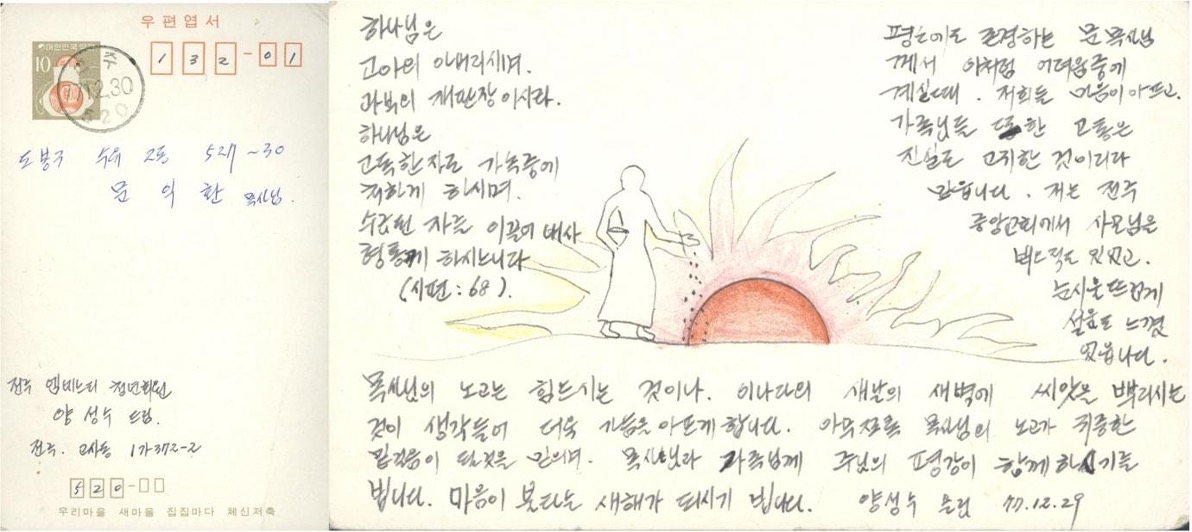 우편엽서
대한민국우표
10
전주
77.12.30
520
132-01
도봉구 수유 2동 527~30
문익환 목사님.
전주 앰네스티 청년회원
양성수 드림.
전주. 고사동 1가 372-2
520-
우리마을 새마을 집집마다 체신저축
하나님은
고아의 아버지시며.
과부의 재판장이시라.
하나님은
고독한자로 가속중에
처하게 하시며.
수금된 자를 이끌어 내사
형통케 하시느니라
(시편:68).
평소에도 존경하는 문목사님
께서 이처럼 어려움중에
계실때. 저희들 마음이 아프고.
가족님들 또한 고통은
진실로 고귀한 것이리라
믿읍니다. 저는 전주
중앙교회에서 사모님은
뵈온적도 있었고.
눈시울 뜨겁게
설움도 느꼈
었읍니다.
목사님의 노고는 힘드시는 것이나. 이나라의 새날의 새벽에 씨앗은 뿌리시는
것이 생각들어 더욱 가슴은 아프게 합니다. 아무쪼록 목사님의 노고가 귀중한
밑거름이 될것을 믿으며. 목사님과 가족님께 주님의 평강이 함께 하시기를
빕니다. 마음이 불타는 새해가 되시기 빕니다. 양성수 드림 77.12.29